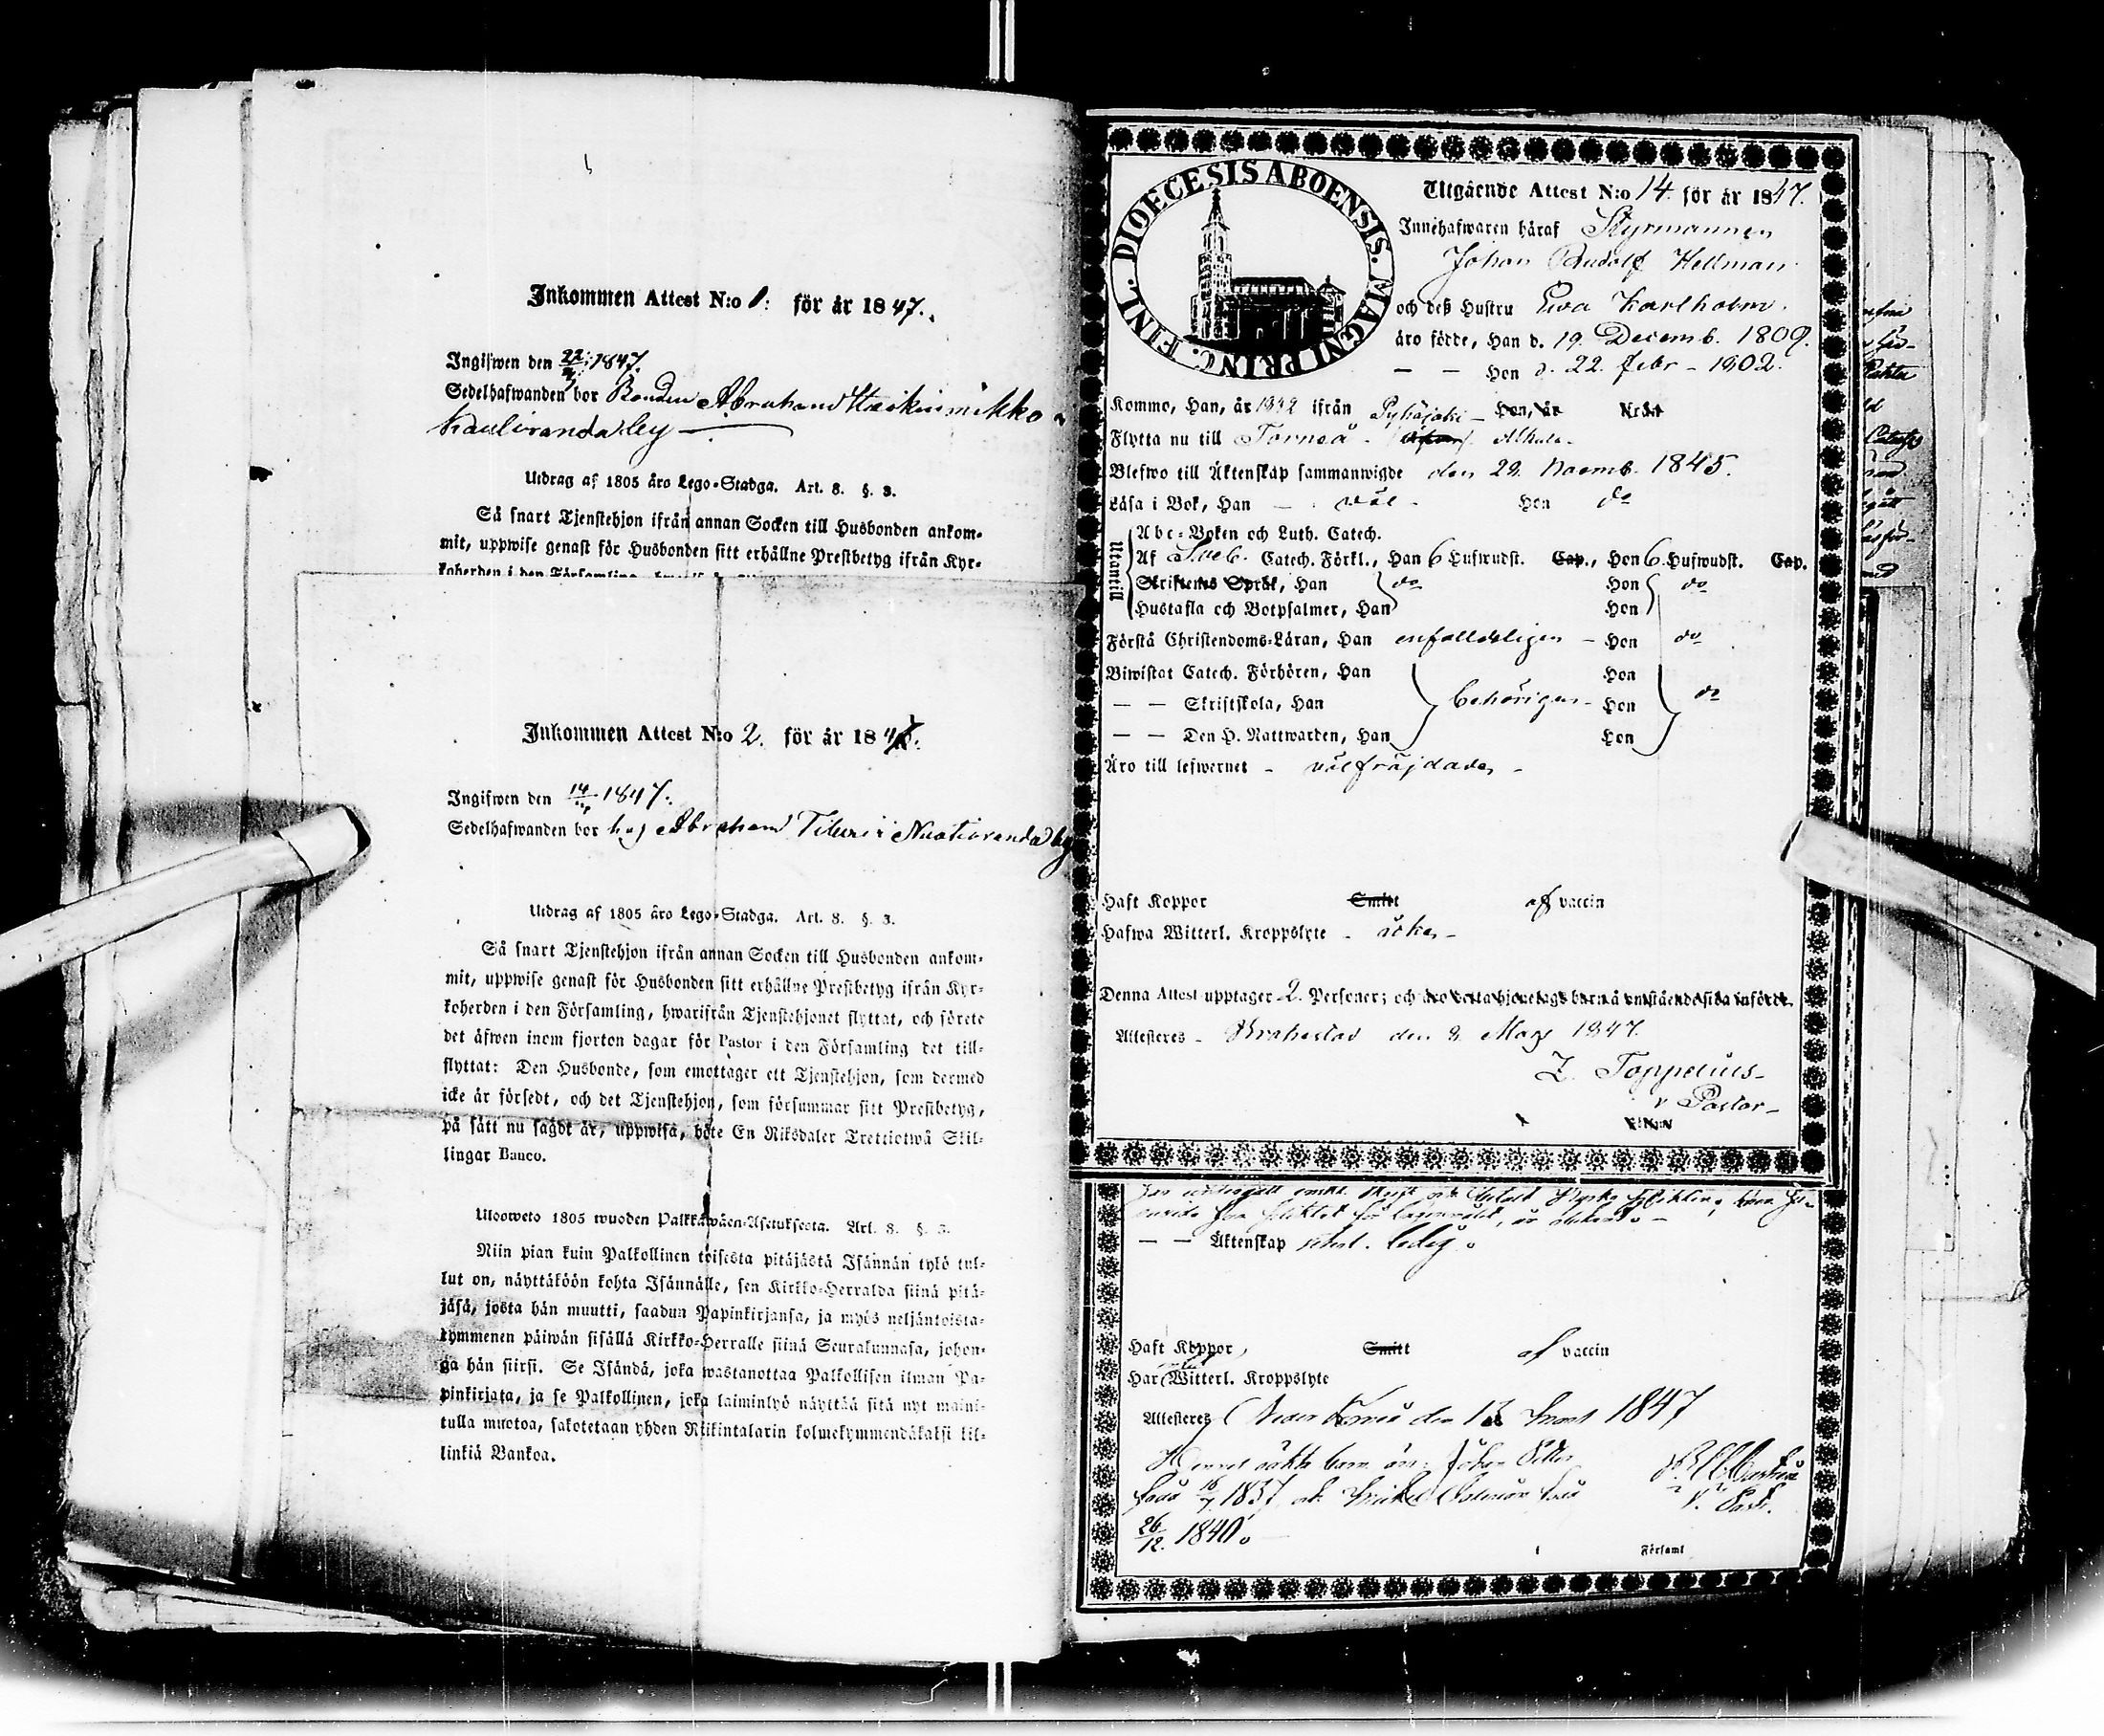 Inkommen Attest N:o 1: för år 1847.
Ingifwen den 22/3 1847.
Sedelhafwanden bor Bonden Abraham Heikinmikko
Kauliranda by
Utdrag af 1805 års Lego-Stadga. Art. 8. §. 3.
Så snart Tjenstehjon ifrån annan Socken till Husbonden ankom-
mit, uppwise genast för Husbonden sitt erhållne Prestbetyg ifrån Kyr-
koherden i den Församling,
Inkommen Attest N:o 2. för år 1847.
Ingifwen den 14/4 1847.
Sedelhafwanden bor hos Abraham i Nuotioranda by
Utdrag af 1805 års Lego-Stadga. Art. 8. §. 3.
Så snart Tjenstehjon ifrån annan Socken till Husbonden ankom-
mit, uppwise genast för Husbonden sitt erhållne Prestbetyg ifrån Kyr-
koherden i den Församling, hwarifrån Tjenstehjonet flyttat, och förete
det äfwen inom fjorton dagar för Pastor i den Församling det till-
flyttat: Den Husbonde, som emottager ett Tjenstehjon, som dermed
icke är försedt, och det Tjenstehjon, som försummar sitt Prestbetyg,
på sätt nu sagdt är, uppwisa, böte En Riksdaler Trettiotwå Skil-
lingar Banco.
Ulosweto 1805 wuoden Palkkawäen-Asetuksesta. Art. 8. §. 3.
Niin pian kuin Palkollinen toisesta pitäjästä Isännän tykö tul-
lut on, näyttäköön kohta Isännälle, sen Kirkko-Herralda siinä pitä-
jäsä, josta hän muutti, saadun Papinkirjansa, ja myös neljäntoista-
kymmenen päiwän sisällä Kirkko-Herralle siinä Seurakunnasa, johon-
ga hän siirsi. Se Isändä, joka wastanottaa Palkollisen ilman Pa-
pinkirjata, ja se Palkollinen, joka laiminlyö näyttää sitä nyt maini-
tulla muotoa, sakotetaan yhden Riikintalarin kolmekymmendäkaksi kil-
linkiä Bankoa.
DIOECESIS ABOENSIS. MAGNI PRINC. FINL.
Utgående Attest N:o 14. för år 1847.
Innehafwaren häraf Styrmannen
Johan Rudolf Hellman
och deß Hustru Ewa Karlholm.
äro födde, Han d. 19. Decemb. 1809.
— — Hon d. 22. Febr – 1802.
Kommo, Han, år 1832 ifrån Pyhäjoki – Hon, år ifrån
Flytta nu till Torneå –
Blefwo till Äktenskap sammanwigde den 29. Novemb. 1845.
Läsa i Bok, Han — wäl – Hon do
Utantill
Abc-Boken och Luth. Catech.
Af Sveb. Catech. Förkl., Han 6 Hufwudst. Cap., Hon 6. Hufwudst. Cap.
Skriftens Språk, Han do Hon do
Hustafla och Botpsalmer, Han Hon
Förstå Christendoms-Läran, Han enfaldeligen – Hon do
Biwistat Catech. Förhören, Han Hon
— — Skriftskola, Han behörigen – Hon do
— — Den H. Nattwarden, Han Hon
Äro till lefwernet – wälfräjdade –
Haft Koppor Smitt af vaccin
Hafwa Witterl. Kroppslyte –
Denna Attest upptager 2. Personer; och äro detta hjonelags barn å omstående sida införde.
Attesteres – Brahestad den 9. Mars 1847.
Z. Toppelius –
v Pastor –
— — Äktenskap ledig.
Haft Koppor, Smitt af vaccin
Har Witterl. Kroppslyte
Attesteras Neder Torneå den 13 Mars 1847
Hennes oäkta barn äro: Johan Petter
född 16/7 1837,
V. Past.
26/12. 1840.
Församl